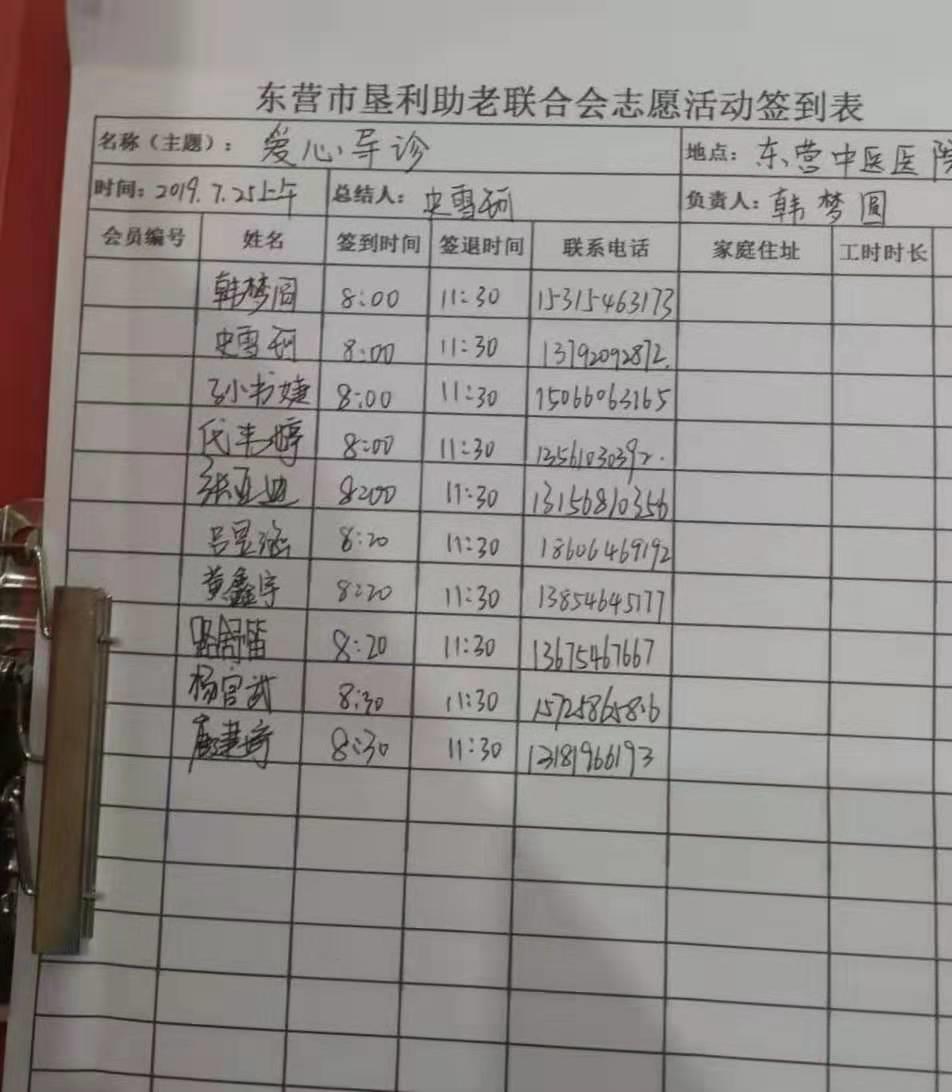 东营市垦利助老联合会志愿活动签到表
名称（主题）： 爱心导诊 地点： 东营中医医院
时间: 2019.7.25上午 总结人： 史雪珂 负责人： 韩梦圆
会员编号 姓名 签到时间 签退时间 联系电话 家庭住址 工时时长
韩梦圆 8:00 11:30 15315463173
史雪珂 8:00 11:30 13792092872.
孙书婕 8:00 11:30 15066063165
8:00 11:30 13561030392.
张亚迪 8:00 11:30 13156810356
吕昱涵 8:20 11:30 18606469192
黄鑫宇 8:20 11:30 13854645177
路舒笛 8:20 11:30 13675467667
杨官武 8:30 11:30
8:30 11:30 13181966193